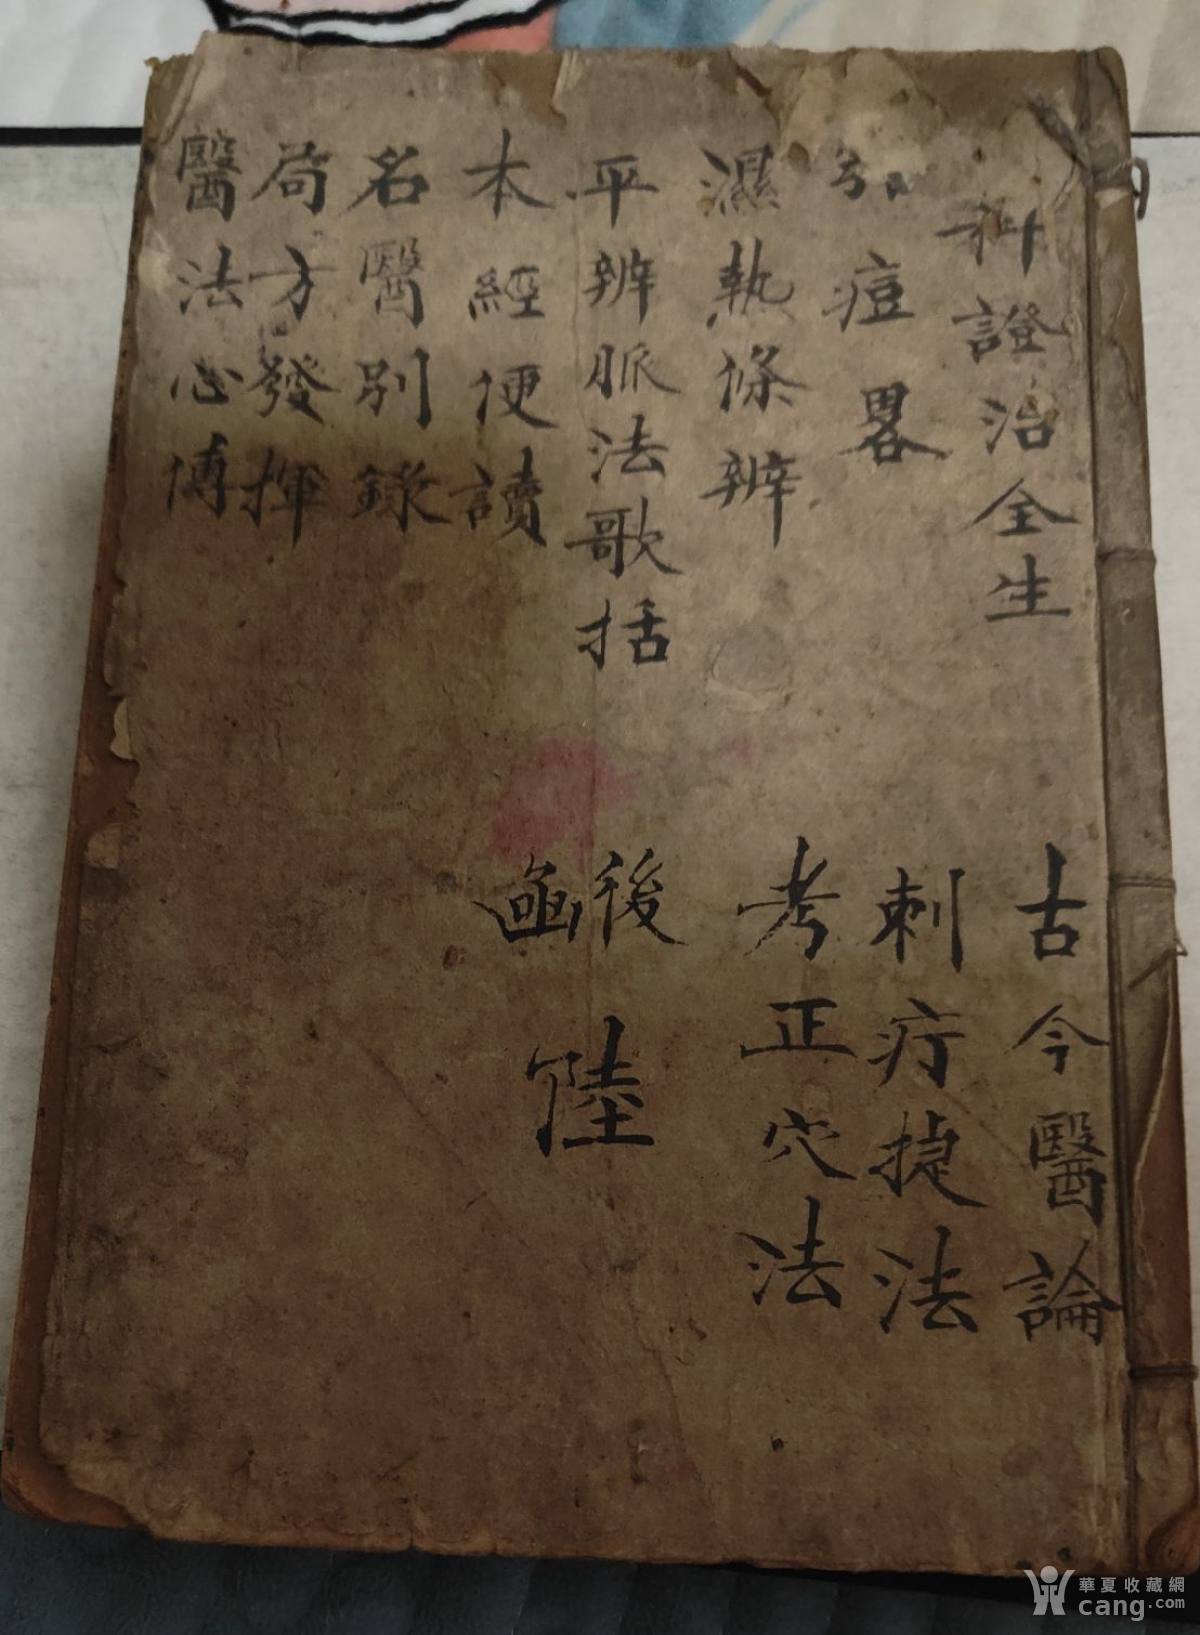 科證治全生
引痘畧
濕熱條辨
平辨脈法歌括
本經便讀
名醫別錄
局方發揮
醫法心傳
古今醫論
刺疔捷法
考正穴法
後
函
陸
華夏收藏網
cang.com